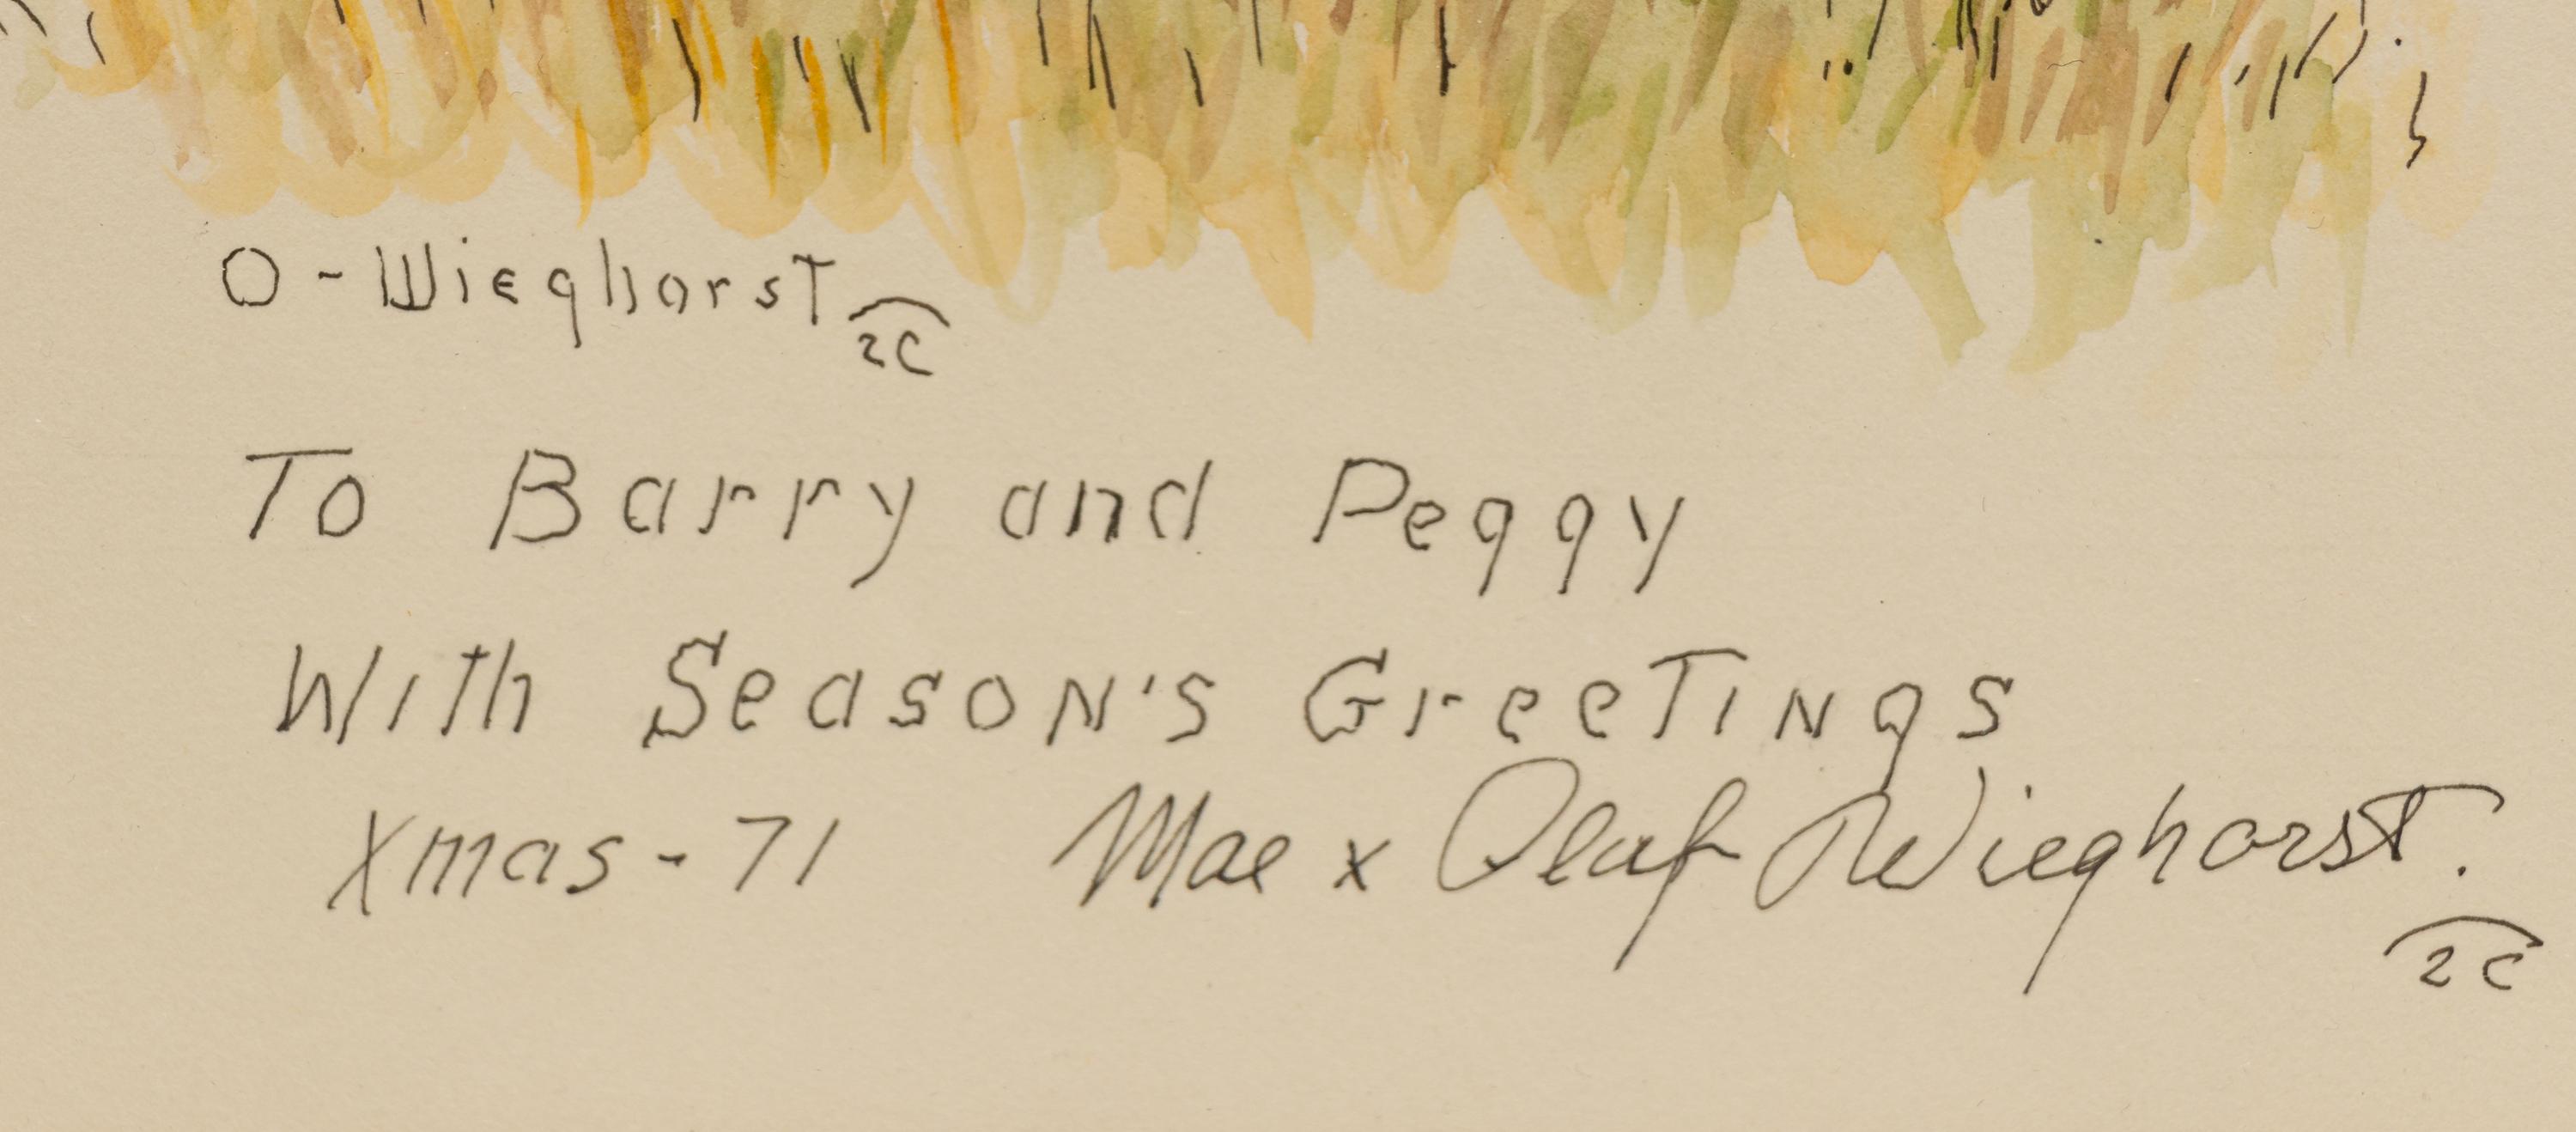 O-Wieghorst 2C
To Barry and Peggy
With Season's Greetings
Xmas-71 Mae x Olaf Wieghorst.
2C